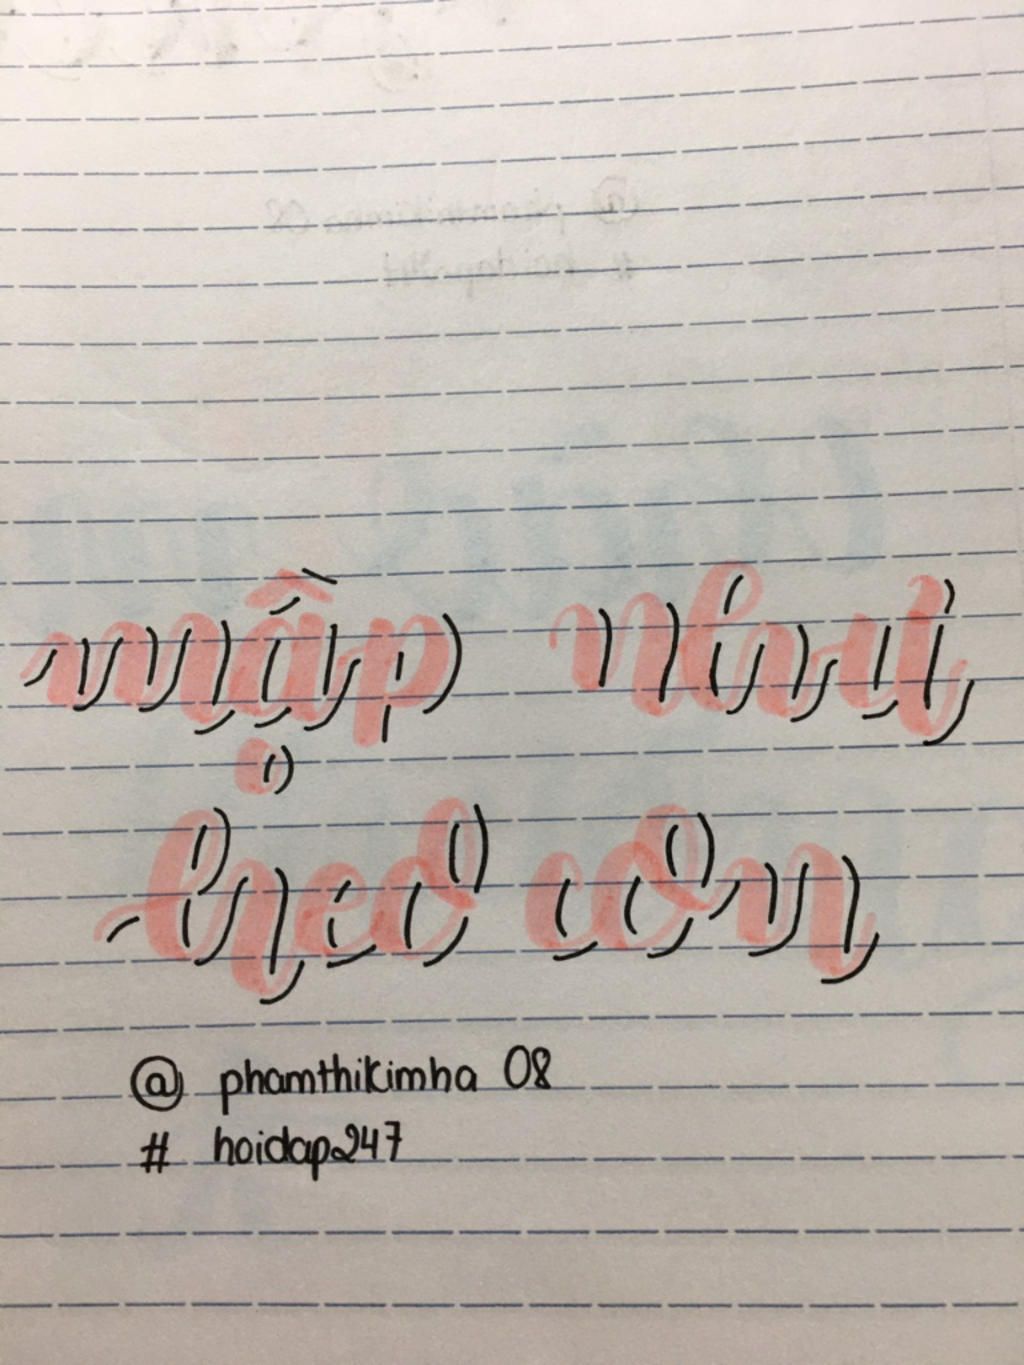 mập như
heo con
@ phamthikimha 08
# hoidap247